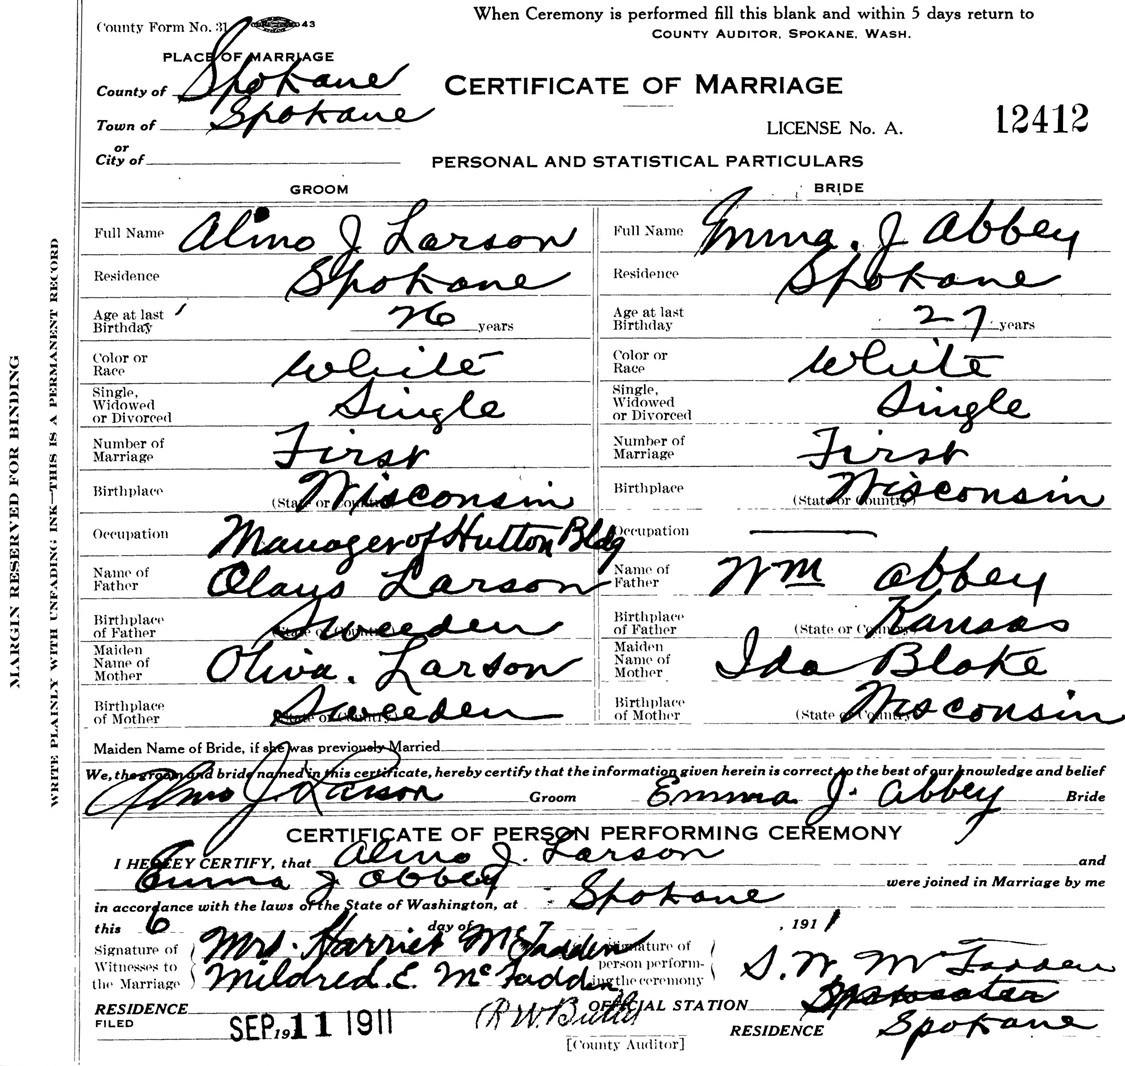 County Form No. 31 43
When Ceremony is performed fill this blank and within 5 days return to
COUNTY AUDITOR, SPOKANE, WASH.
PLACE OF MARRIAGE
County of Spokane
Town of Spokane
or
City of
CERTIFICATE OF MARRIAGE
LICENSE No. A. 12412
PERSONAL AND STATISTICAL PARTICULARS
GROOM BRIDE
Full Name Almo J Larson Full Name Emma. J Abbey
Residence Spokane Residence Spokane
Age at last Birthday 26 years Age at last Birthday 27 years
Color or Race White Color or Race White
Single, Widowed or Divorced Single Single, Widowed or Divorced Single
Number of Marriage First Number of Marriage First
Birthplace (State or Country) Wisconsin Birthplace (State or Country) Wisconsin
Occupation Manager of Hutton Bldg Occupation ———
Name of Father Olaus Larson Name of Father Wm Abbey
Birthplace of Father (State or Country) Sweeden Birthplace of Father (State or Country) Kansas
Maiden Name of Mother Oliva. Larson Maiden Name of Mother Ida Blake
Birthplace of Mother (State or Country) Sweeden Birthplace of Mother (State or Country) Wisconsin
Maiden Name of Bride, if she was previously Married
We, the groom and bride named in this certificate, hereby certify that the information given herein is correct to the best of our knowledge and belief
Almo J. Larson Groom Emma J. Abbey Bride
CERTIFICATE OF PERSON PERFORMING CEREMONY
I HEREBY CERTIFY, that Almo J. Larson and
Emma J Abbey were joined in Marriage by me
in accordance with the laws of the State of Washington, at Spokane
this 6 day of , 1911
Signature of Witnesses to the Marriage Mrs. Harriet McFadden
Mildred. E. McFadden
Signature of person performing the ceremony S. W. McFadden
RESIDENCE OFFICIAL STATION
FILED SEP 11 1911 R W. Butler RESIDENCE Spokane
[County Auditor]
MARGIN RESERVED FOR BINDING
WRITE PLAINLY WITH UNFADING INK—THIS IS A PERMANENT RECORD